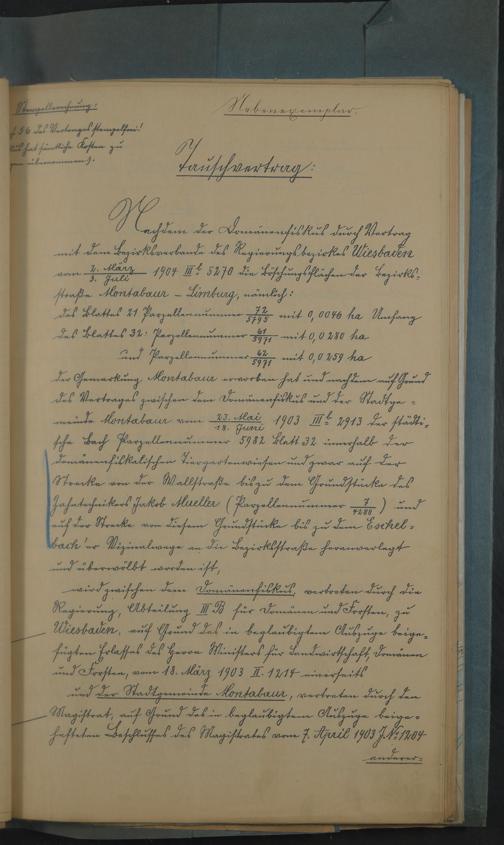 Stempelberechnung:
§ 6 des Vertrages stempelfrei!
hat sämtliche Kosten zu
übernommen.
Nebenexemplar.
Tauschvertrag:
Nachdem der Domänenfiskus durch Vertrag
mit dem Bezirksverbande des Regierungsbezirkes Wiesbaden
vom 2. März / 3. Juli 1904 III b 5270 die Böschungsflächen der Bezirks-
straße Montabaur – Limburg, nämlich:
des Blattes 21 Parzellennummer 72/5793 mit 0,0046 ha Umfang
des Blattes 32. Parzellennummer 61/5971 mit 0,0280 ha
und Parzellennummer 62/5971 mit 0,0259 ha
der Gemarkung Montabaur erworben hat und nachdem auf Grund
des Vertrages zwischen dem Domänenfiskus und der Stadtge-
meinde Montabaur vom 23. Mai / 18. Juni 1903 III b 2913 der städti-
sche Bach Parzellennummer 5982 Blatt 32 innerhalb der
domänenfiskalischen Tiergartenwiesen und zwar auf der
Strecke von der Wallstraße bis zu dem Grundstücke des
Zahntechnikers Jakob Mueller (Parzellennummer 7/4288) und
auf der Strecke von diesem Grundstücke bis zu dem Eschel-
bach'er Vizinalwege an die Bezirksstraße heranverlegt
und überwölbt worden ist,
wird zwischen dem Domänenfiskus, vertreten durch die
Regierung, Abteilung III B für Domänen und Forsten, zu
Wiesbaden, auf Grund des in beglaubigtem Auszuge beige-
fügten Erlasses des Herrn Ministers für Landwirtschaft, Domänen
und Forsten, vom 18. März 1903 II. 1214 einerseits
und der Stadtgemeinde Montabaur, vertreten durch den
Magistrat, auf Grund des in beglaubigtem Auszuge beige-
hefteten Beschlusses des Magistrates vom 7. April 1903 J. No 1204
anderer-